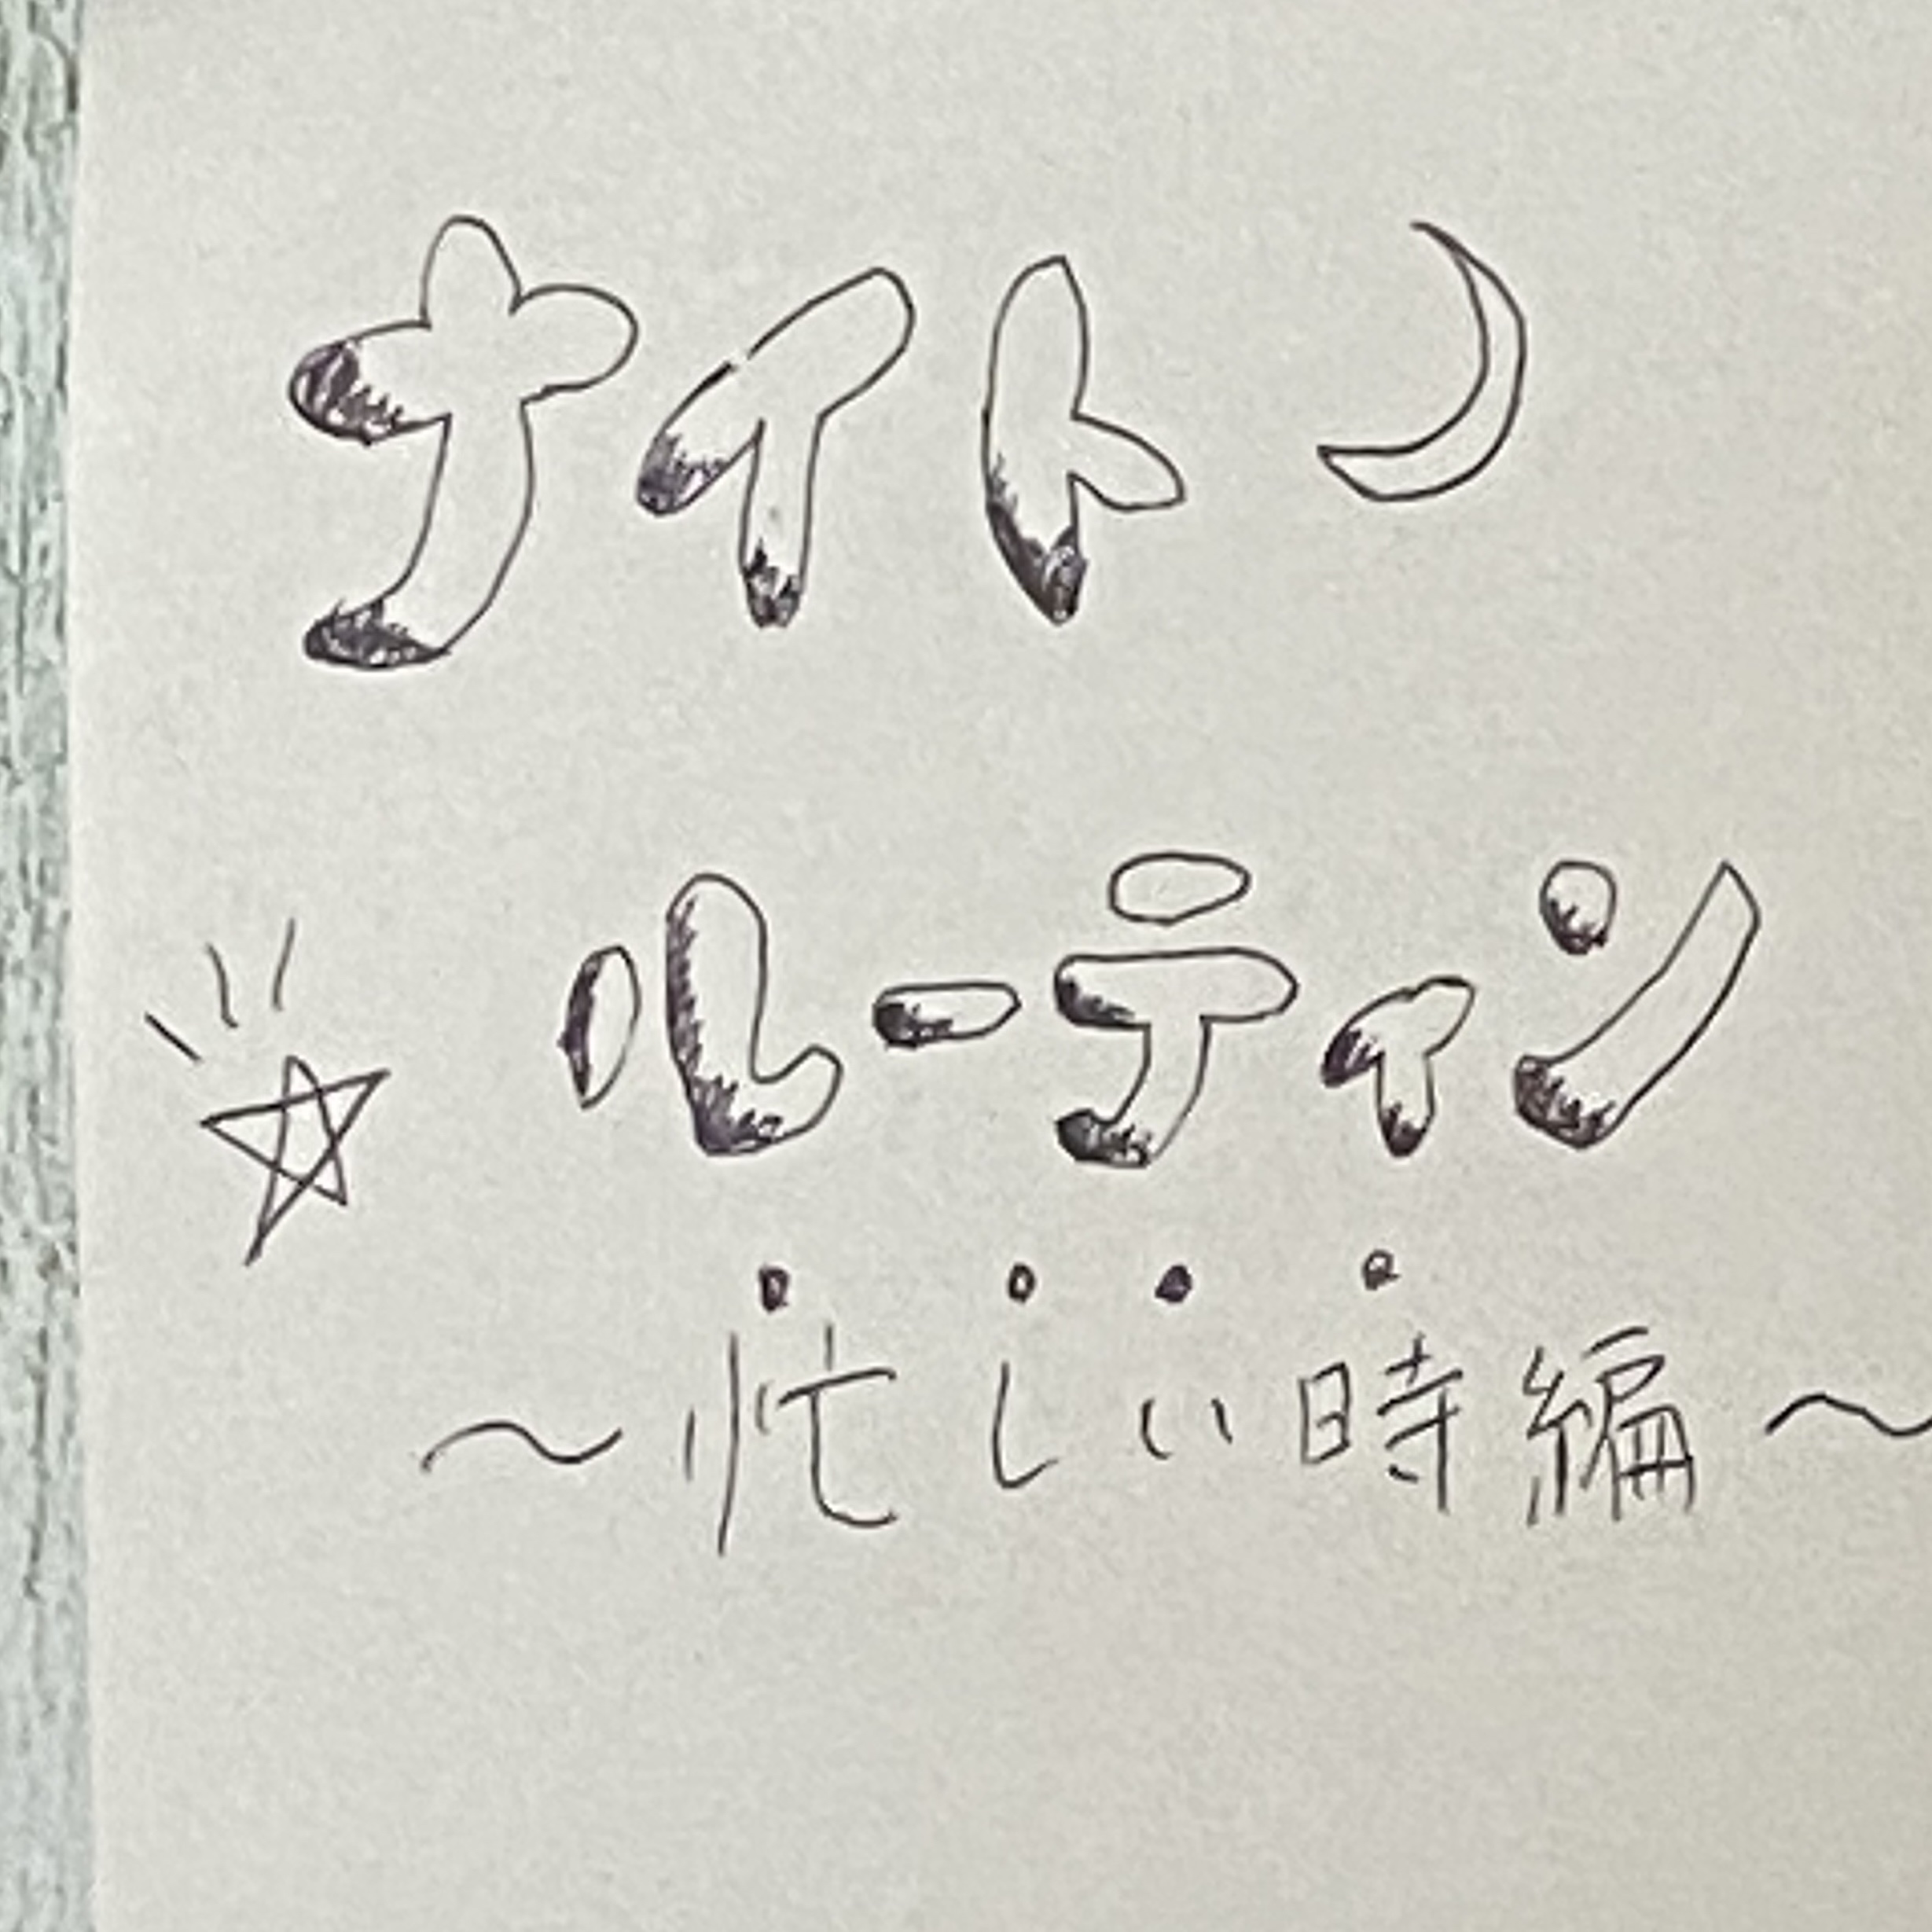 ナイト
ルーティン
～忙しい時編～